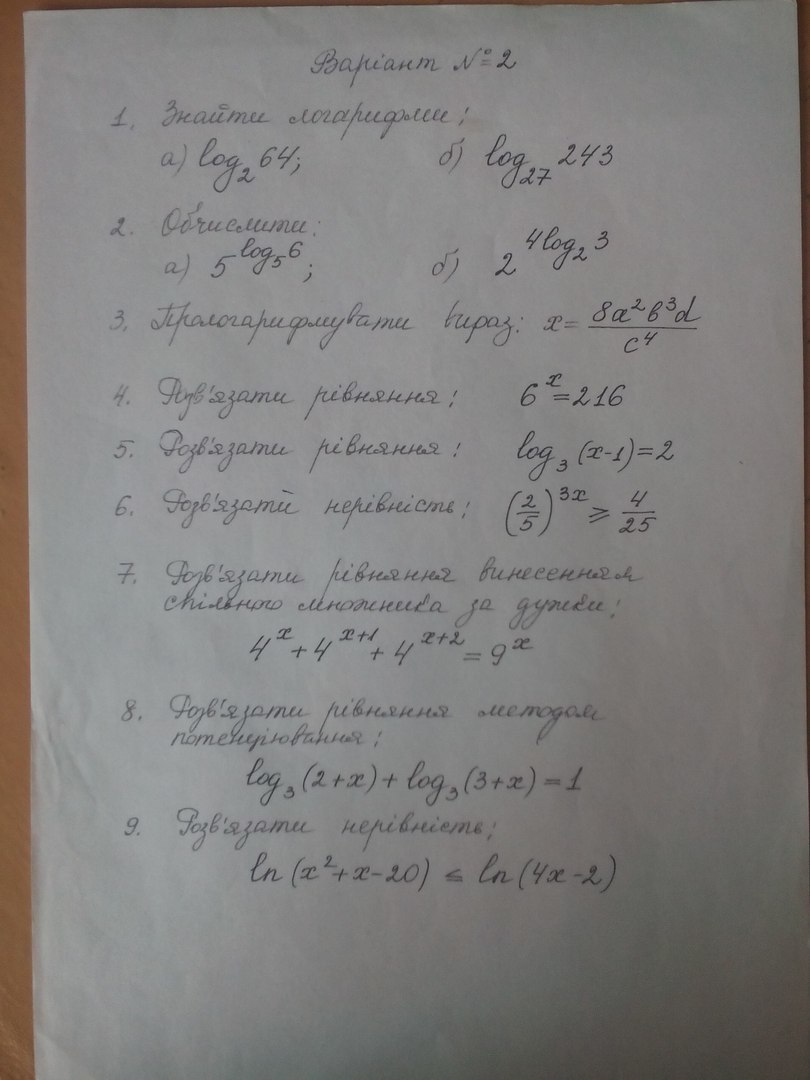 Варіант №2
1. Знайти логарифми:
а) log₂64; б) log₂₇243
2. Обчислити:
а) 5^(log₅6); б) 2^(4log₂3)
3. Прологарифмувати вираз: x = (8a²b³d)/(c⁴)
4. Розв'язати рівняння: 6^x = 216
5. Розв'язати рівняння: log₃(x-1) = 2
6. Розв'язати нерівність: (2/5)^(3x) ⩾ 4/25
7. Розв'язати рівняння винесенням
спільного множника за дужки:
4^x + 4^(x+1) + 4^(x+2) = 9^x
8. Розв'язати рівняння методом
потенціювання:
log₃(2+x) + log₃(3+x) = 1
9. Розв'язати нерівність:
ln(x²+x-20) ⩽ ln(4x-2)